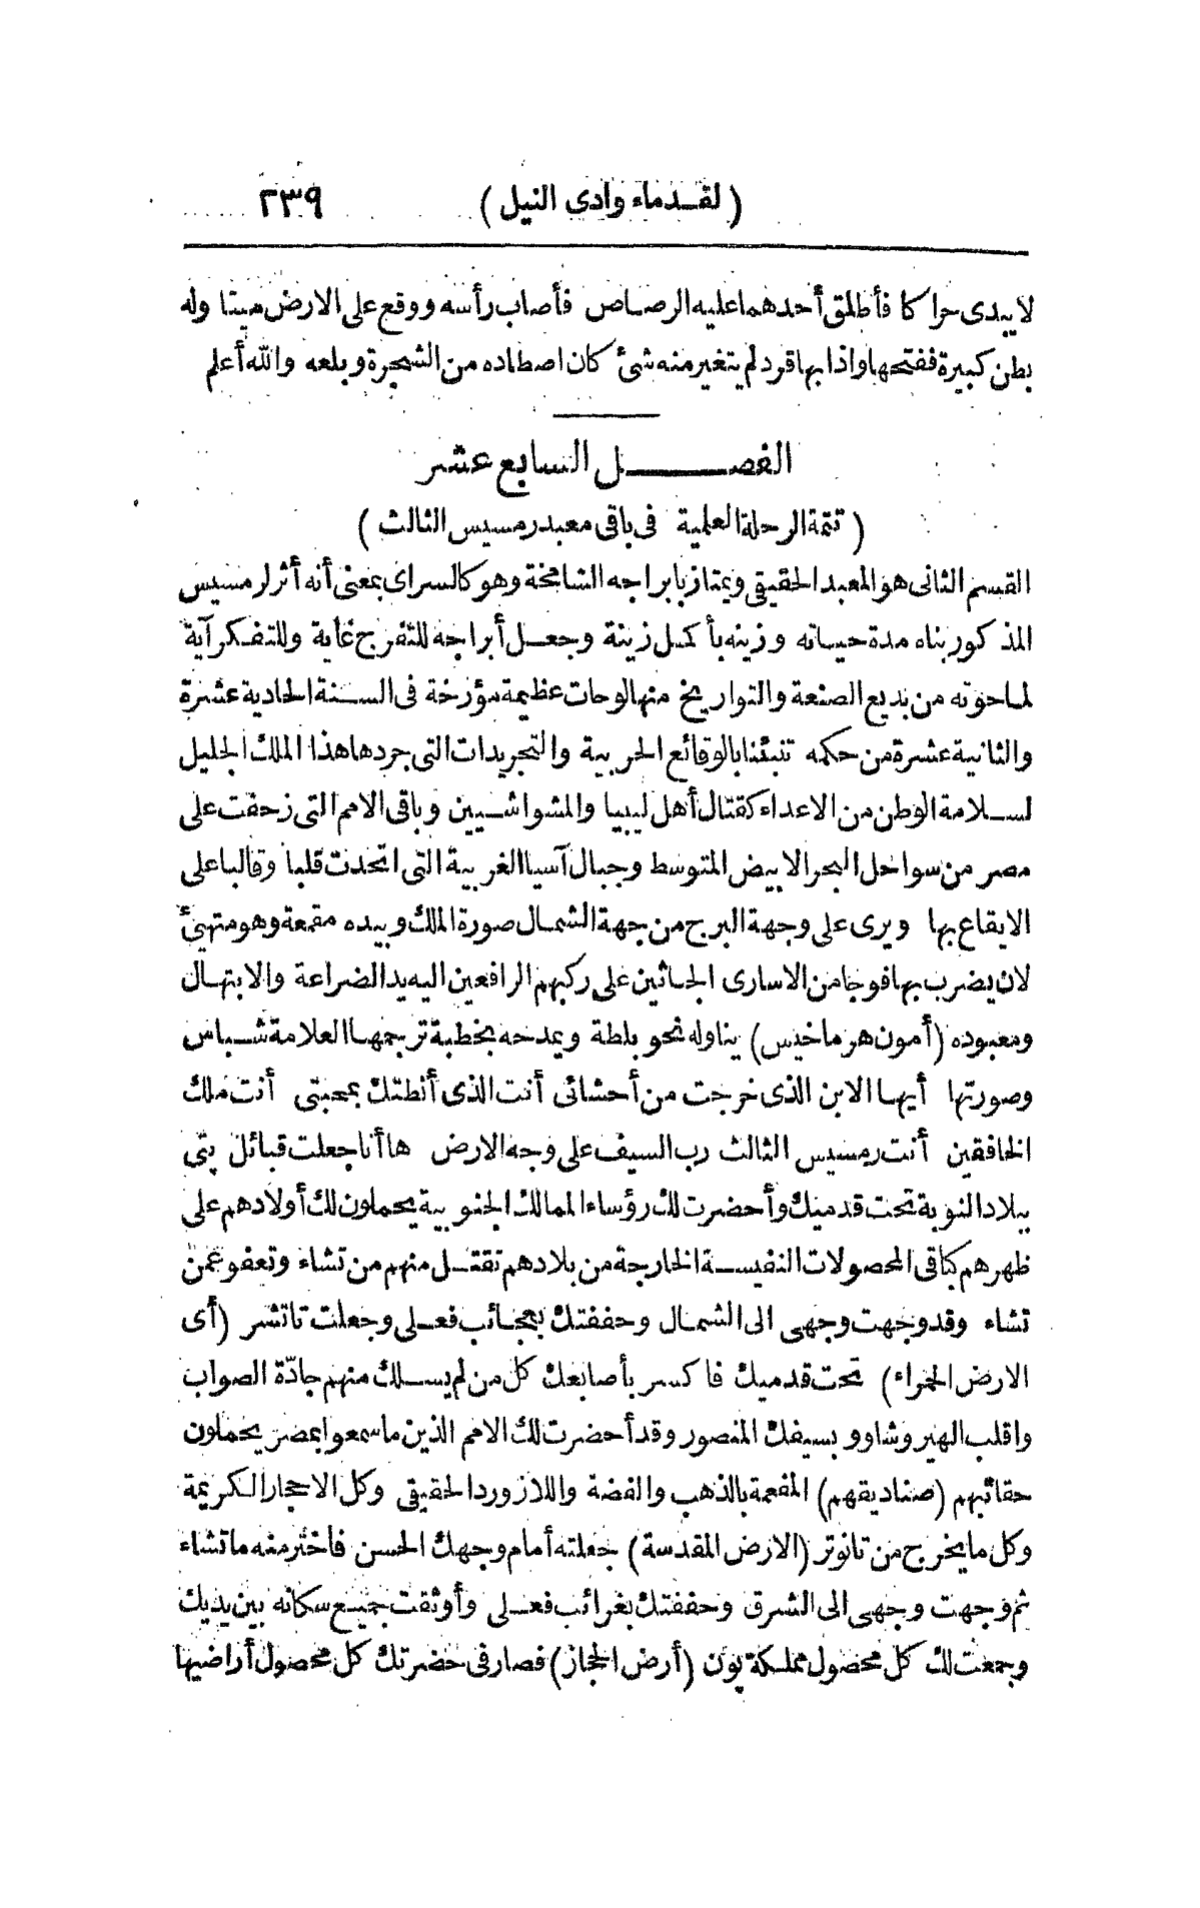 (لقدماء وادى النيل) ٢٣٩
لا يبدى حراكا فأطلق أحدهما عليه الرصاص فأصاب رأسه ووقع على الارض ميتا وله
بطن كبيرة ففتحها واذا بها قرد لم يتغير منه شئ كان اصطاده من الشجرة وبلعه والله أعلم
الفصل السابع عشر
(تتمة الرحلة العلمية فى باقى معبد رمسيس الثالث)
القسم الثانى هو المعبد الحقيقى ويمتاز بابراجه الشامخة وهو كالسراى بمعنى أنه أثر لرمسيس
المذكور بناه مدة حياته وزينه بأكمل زينة وجعل أبراجه للتفرج غاية وللتفكر آية
لما حوته من بديع الصنعة والتواريخ منها لوحات عظيمة مؤرخة فى السنة الحادية عشرة
والثانية عشرة من حكمه تنبئنا بالوقائع الحربية والتجريدات التى جردها هذا الملك الجليل
لسلامة الوطن من الاعداء كقتال أهل ليبيا والمشواشيين وباقى الامم التى زحفت على
مصر من سواحل البحر الابيض المتوسط وجبال آسيا الغربية التى اتحدت قلبا وقالبا على
الايقاع بها ويرى على وجهة البرج من جهة الشمال صورة الملك وبيده مقمعة وهو متهيئ
لان يضرب بها فوجا من الاسارى الجاثين على ركبهم الرافعين اليه يد الضراعة والابتهال
ومعبوده (أمون هرماخيس) يناوله نحو بلطة ويمدحه بخطبة ترجمها العلامة شباس
وصورتها أيها الابن الذى خرجت من أحشائى أنت الذى أنطتك بمحبتى أنت ملك
الخافقين أنت رمسيس الثالث رب السيف على وجه الارض ها أنا جعلت قبائل پتى
ببلاد النوبة تحت قدميك وأحضرت لك رؤساء الممالك الجنوبية يحملون لك أولادهم على
ظهرهم كباقى المحصولات النفيسة الخارجة من بلادهم تقتل منهم من تشاء وتعفو عمن
تشاء وقد وجهت وجهى الى الشمال وحففتك بعجائب فعلى وجعلت تاتشر (أى
الارض الحمراء) تحت قدميك فاكسر بأصابعك كل من لم يسلك منهم جادّة الصواب
واقلب الهيروشاوو بسيفك المنصور وقد أحضرت لك الامم الذين ما سمعوا بمصر يحملون
حقائبهم (صناديقهم) المفعمة بالذهب والفضة واللازورد الحقيقى وكل الاحجار الكريمة
وكل ما يخرج من تانوتر (الارض المقدسة) جعلته أمام وجهك الحسن فاختر منه ما تشاء
ثم وجهت وجهى الى الشرق وحففتك بغرائب فعلى وأوثقت جميع سكانه بين يديك
وجمعت لك كل محصول مملكة پون (أرض الحجاز) فصار فى حضرتك كل محصول أراضيها